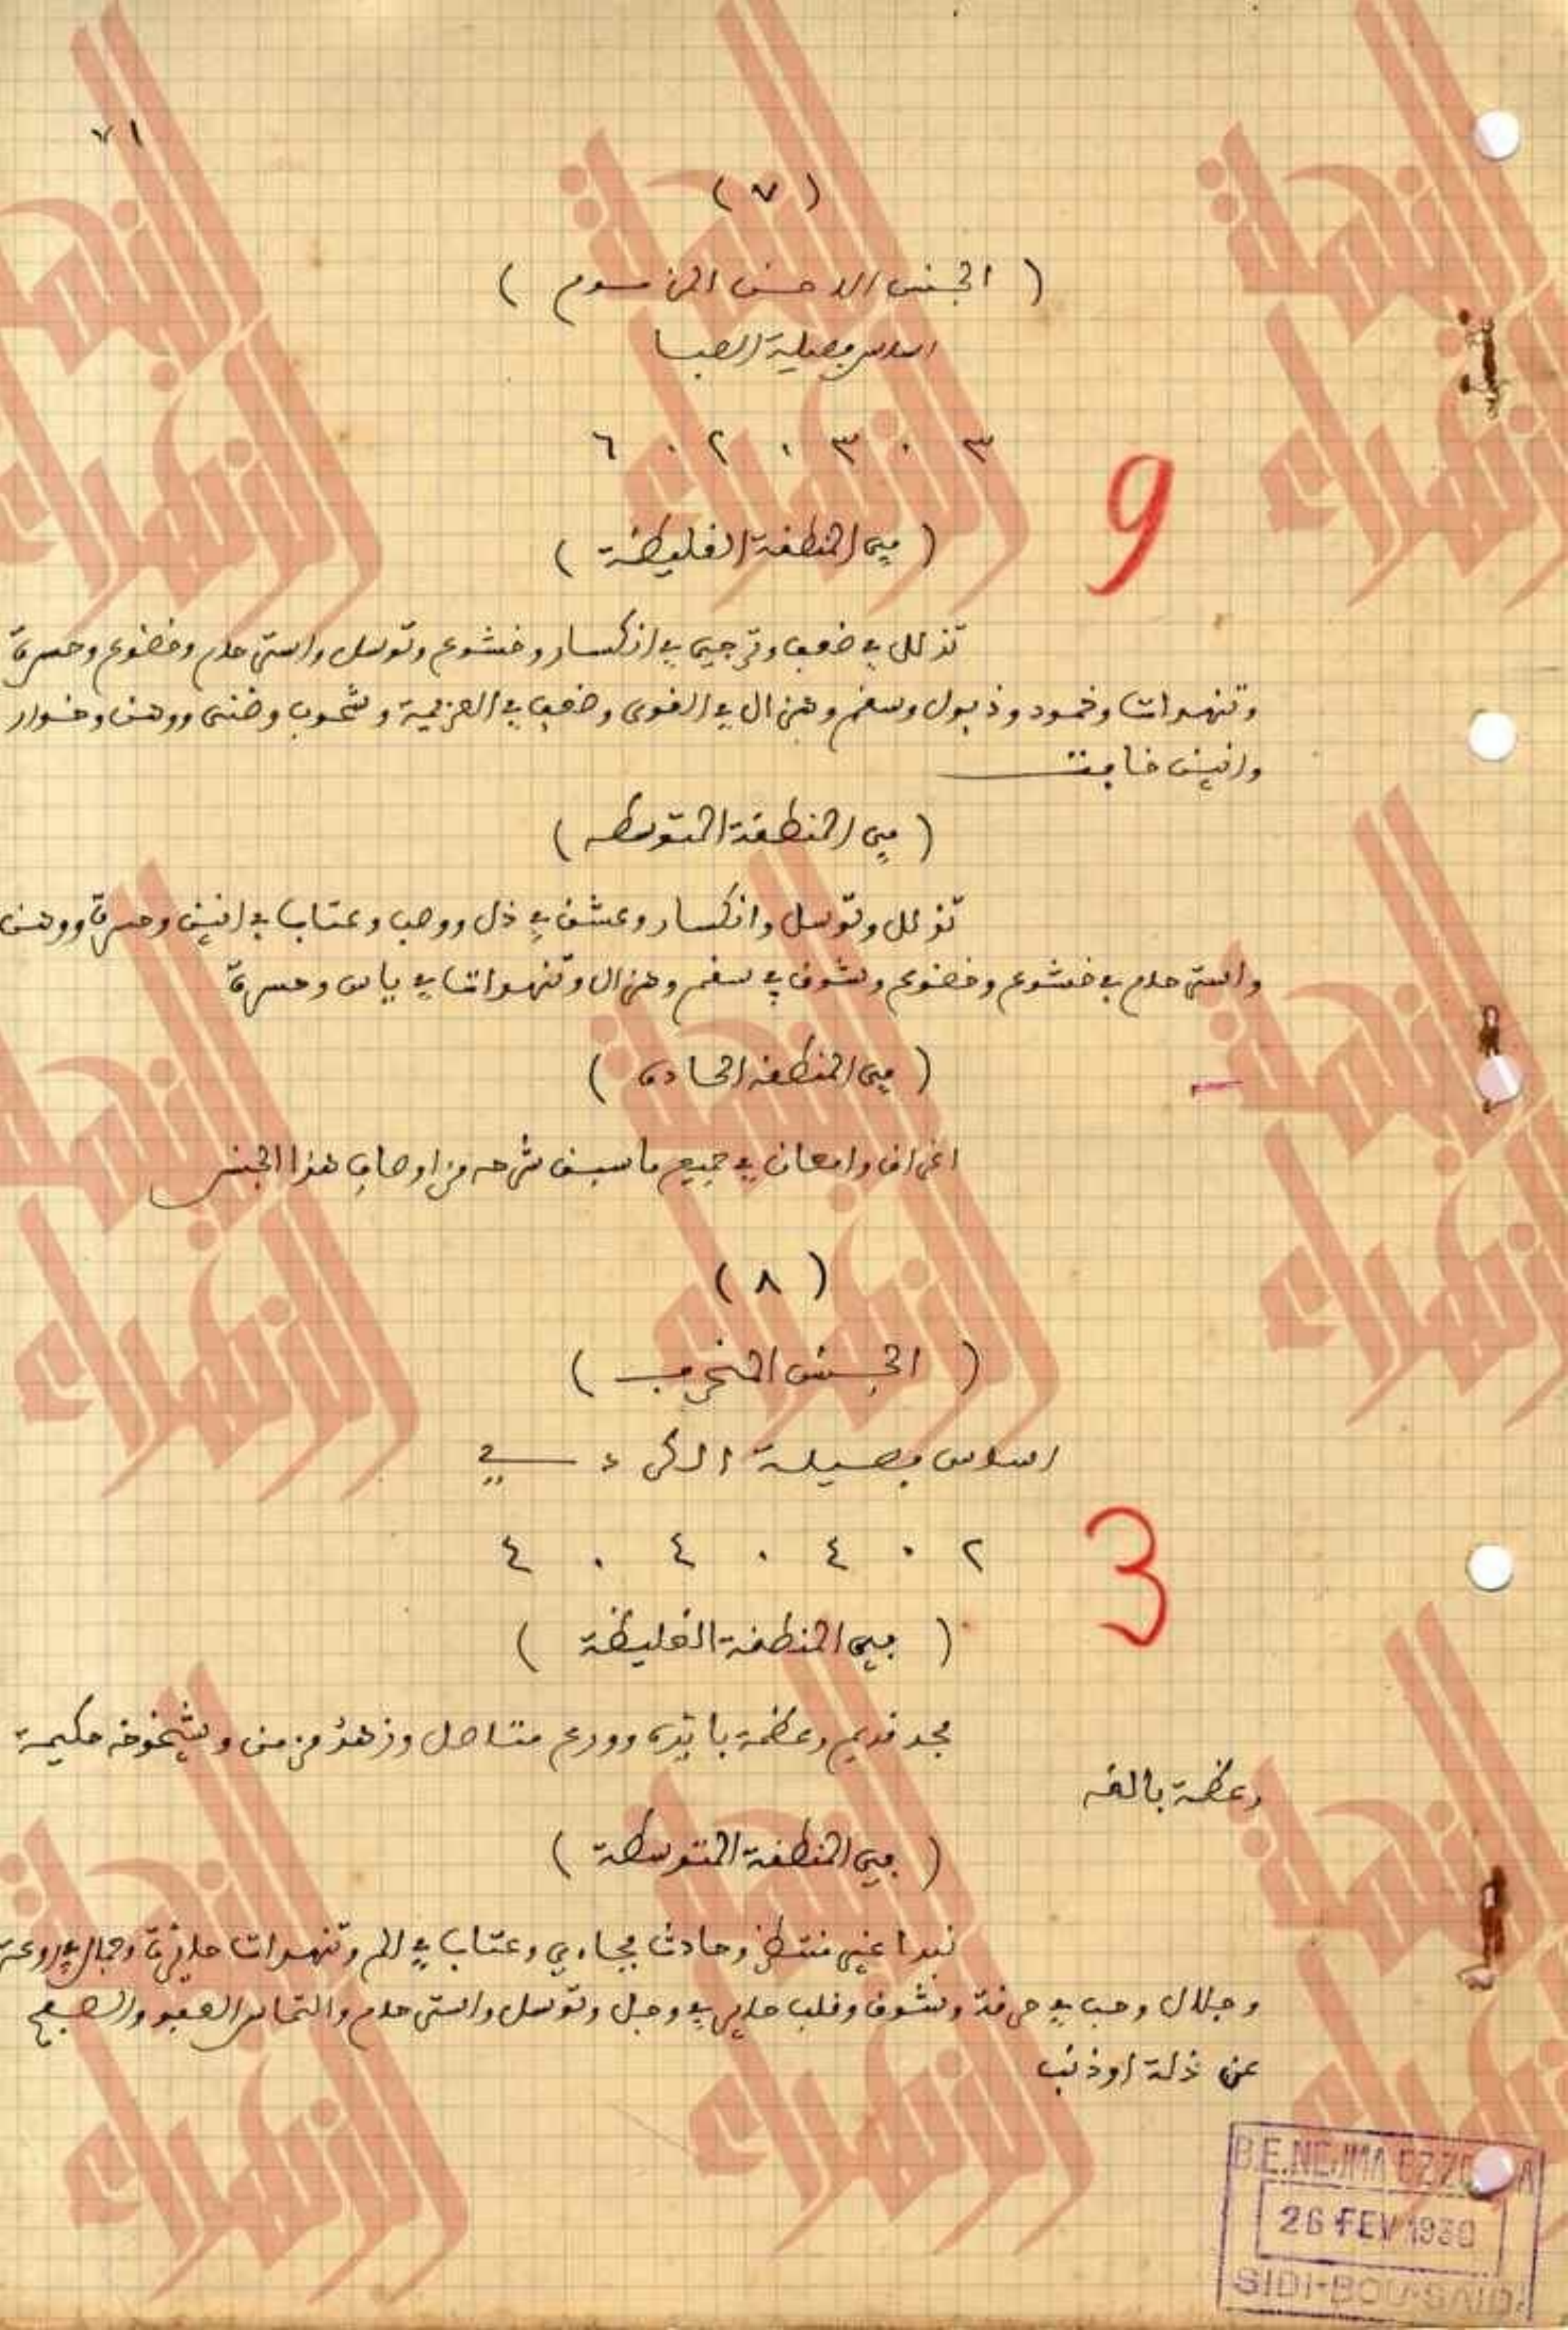 ٧١
( ٧ )
( الجنس الاخن المزموم )
اساس فصيلة الصبا
٣ . ٣ . ٢ . ٦
9
( في المنطقة الغليظة )
تذلل في ضعف وترجي في انكسار وخشوع وتوسل واسترحام وخضوع وحسرة
وتنهدات وخمود وذبول وسقم وهزال في القوى وضعف في العزيمة وشحوب وضنى ووهن وخوار
وانين خافت
( في المنطقة المتوسطه )
تذلل وتوسل وانكسار وعشق في ذل ووصب وعتاب في انين وحسرة ووهن
واسترحام في خشوع وخضوع وتشوق في سقم وهزال وتنهدات في ياس وحسرة
( في المنطقه الحاده )
اغراق وامعان في جميع ما سبق شرحه من اوصاف هذا الجنس
( ٨ )
( الجنس المنحرف )
اساس فصيلة الكردي
٢ . ٤ . ٤ . ٤
3
( في المنطقة الغليظة )
مجد قديم وعظمة بائده وورع متاصل وزهد مزمن وشيخوخه حكيمة
وعظمة بالغه
( في المنطقة المتوسطة )
نبدا غير منتظر وحادث فجاءي وعتاب في الم وتنهدات حائرة وجمال في روعة
وجلال وحب في حرقة وتشوق وقلب حاير في وجل وتوسل واسترحام والتماس العفو والصفح
عن ذلة او ذنب
B.E.NEJMA EZZOHRA
26 FEV 1930
SIDI-BOU-SAID
النجمة الزهراء